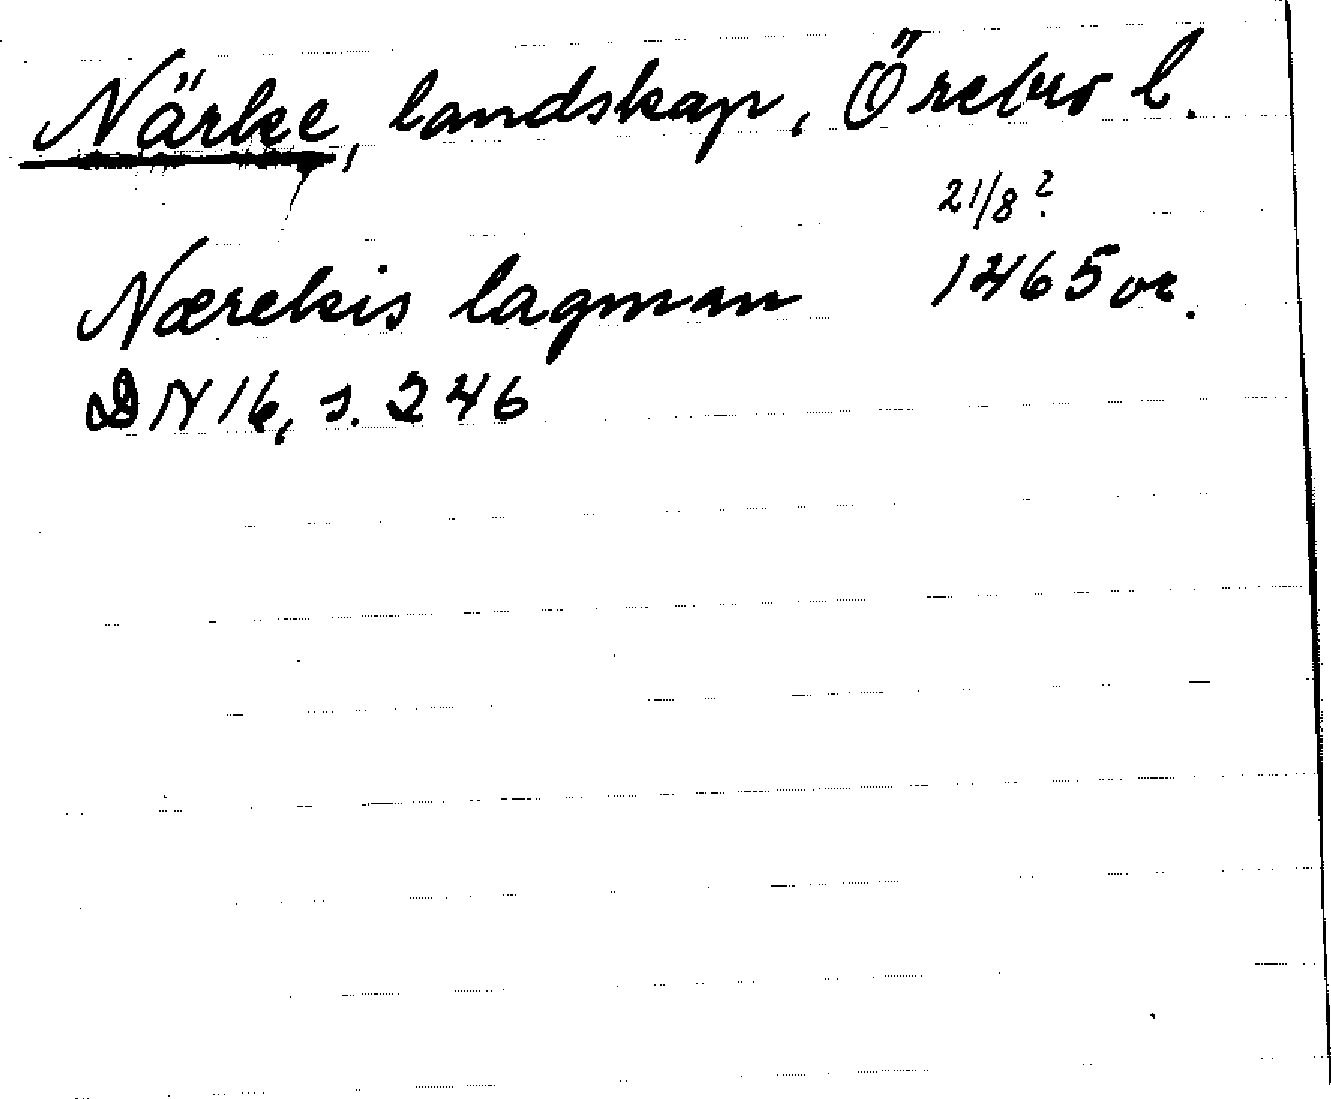 Närke, landskap, Örebro l.
21/8?
Nærekis lagman 1465 or.
DN 16, s. 246